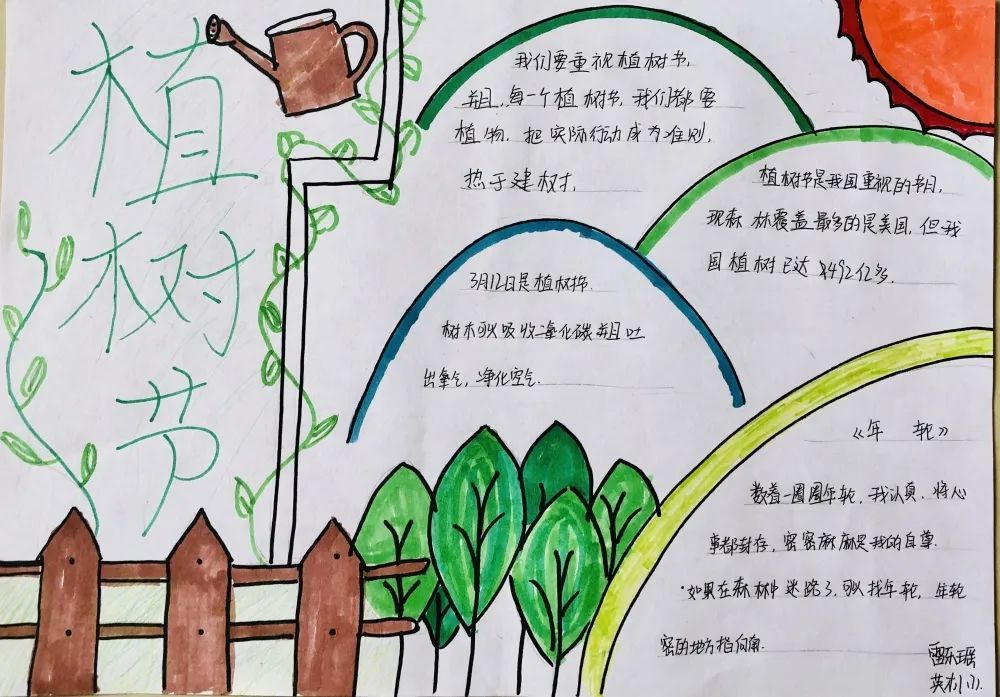 植
树
节
我们要重视植树节,
并且,每一个植树节,我们都要
植物,把实际行动成为准则,
热于建树,
植树节是我国重视的节日,
现森林覆盖最多的是美国,但我
国植树已达492亿多.
3月12日是植树节.
树木可以吸收净化碳并且吐
出氧气,净化空气.
《年 轮》
数着一圈圈年轮,我认真,将心
事都封存,密密麻麻是我的自尊.
·如果在森林中迷路了,可以找年轮,年轮
密的地方指向南.
英才小小